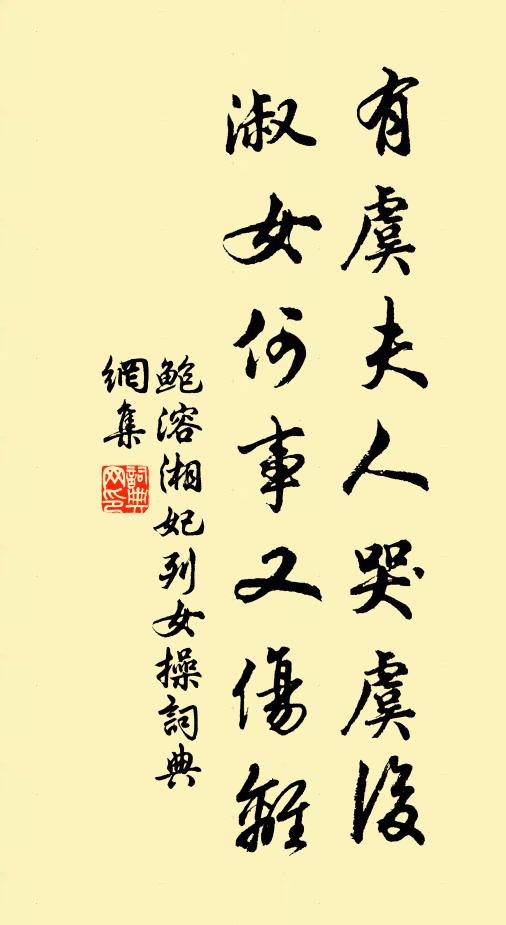 有虞夫人哭虞後
淑女何事又傷離
鮑溶湘妃列女操詞典
網集
詞典網印